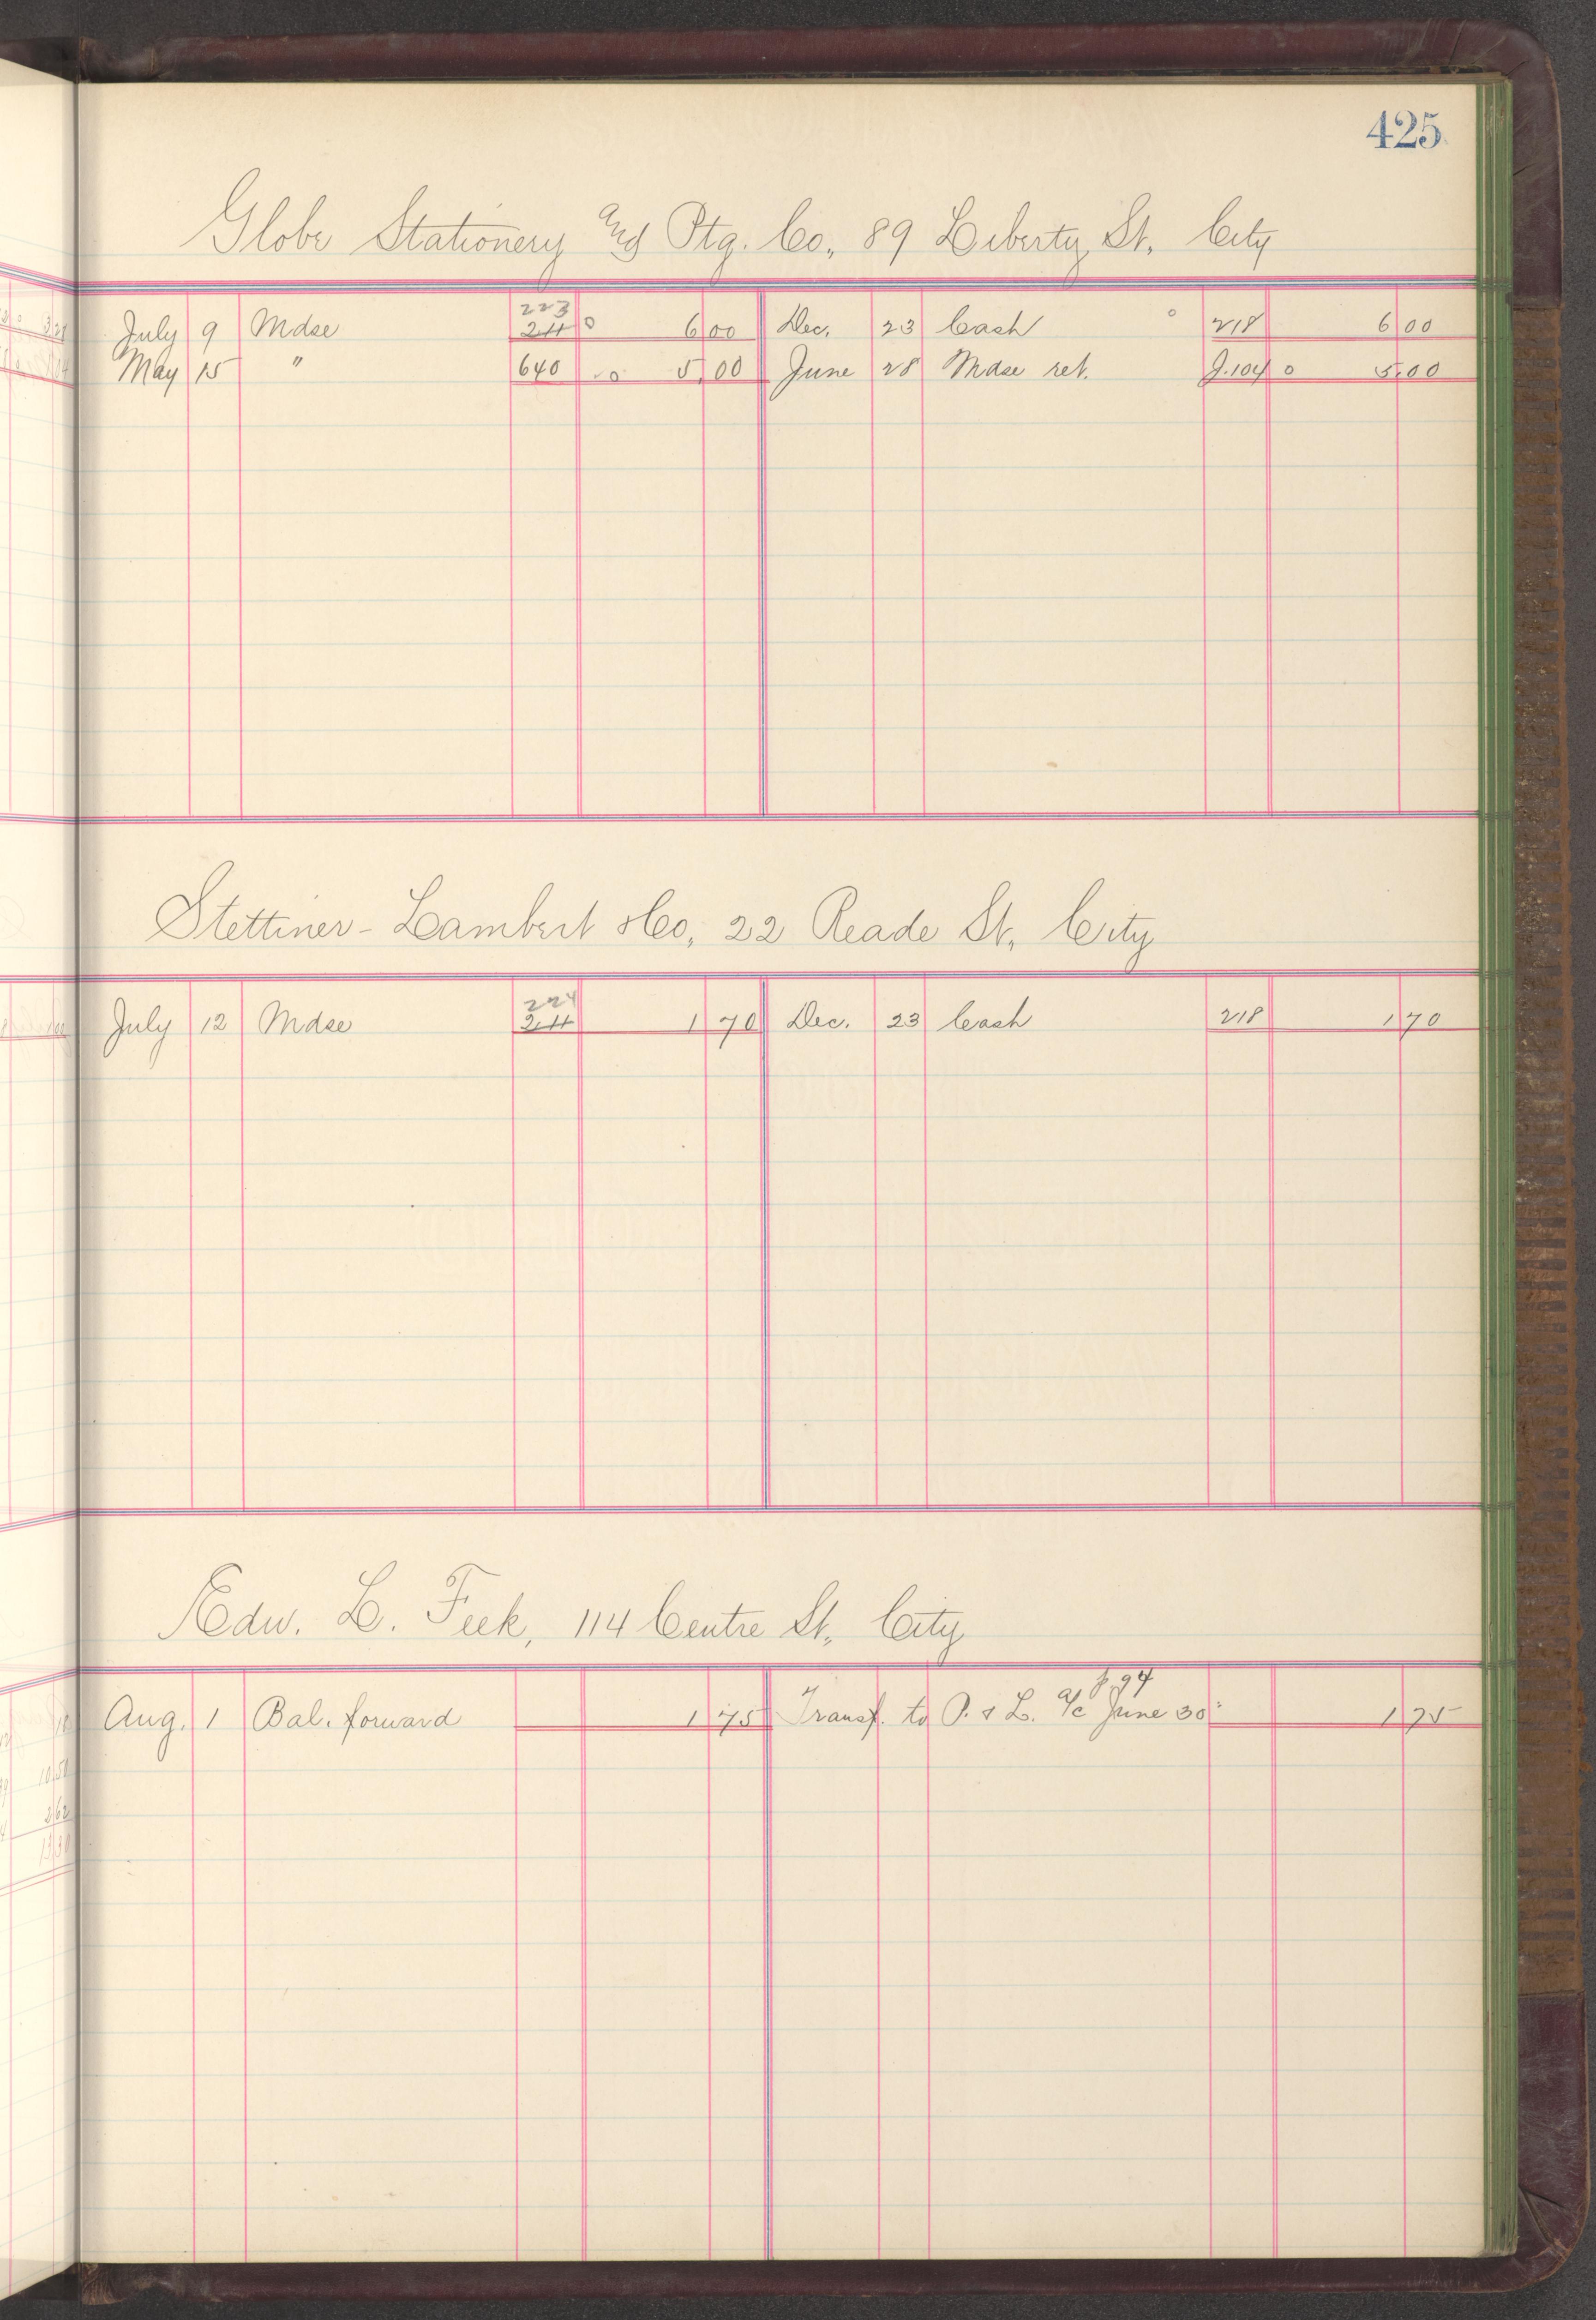 425
Globe Stationery and Ptg. Co., 89 Liberty St. City
223
July 9 Mdse 211 o 6 00 Dec. 23 Cash o 218 6 00
May 15 " 640 o 5.00 June 28 Mdse ret. J.104 o 5.00
Stettiner-Lambert & Co, 22 Reade St. City
224
July 12 Mdse 211 1 70 Dec. 23 Cash 218 1 70
Edw. L. Feek, 114 Centre St., City
p. 94
Aug. 1 Bal. forward 1 75 Transf. to P. & L. a/c June 30 1 75
10 50
2 62
13 30